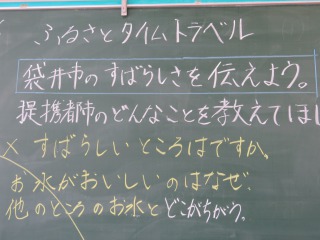 ふるさとタイムトラベル
袋井市のすばらしさを伝えよう。
提携都市のどんなことを教えてほし
× すばらしいところはですか。
お水がおいしいのはなぜ.
他のところのお水とどこがちがう。